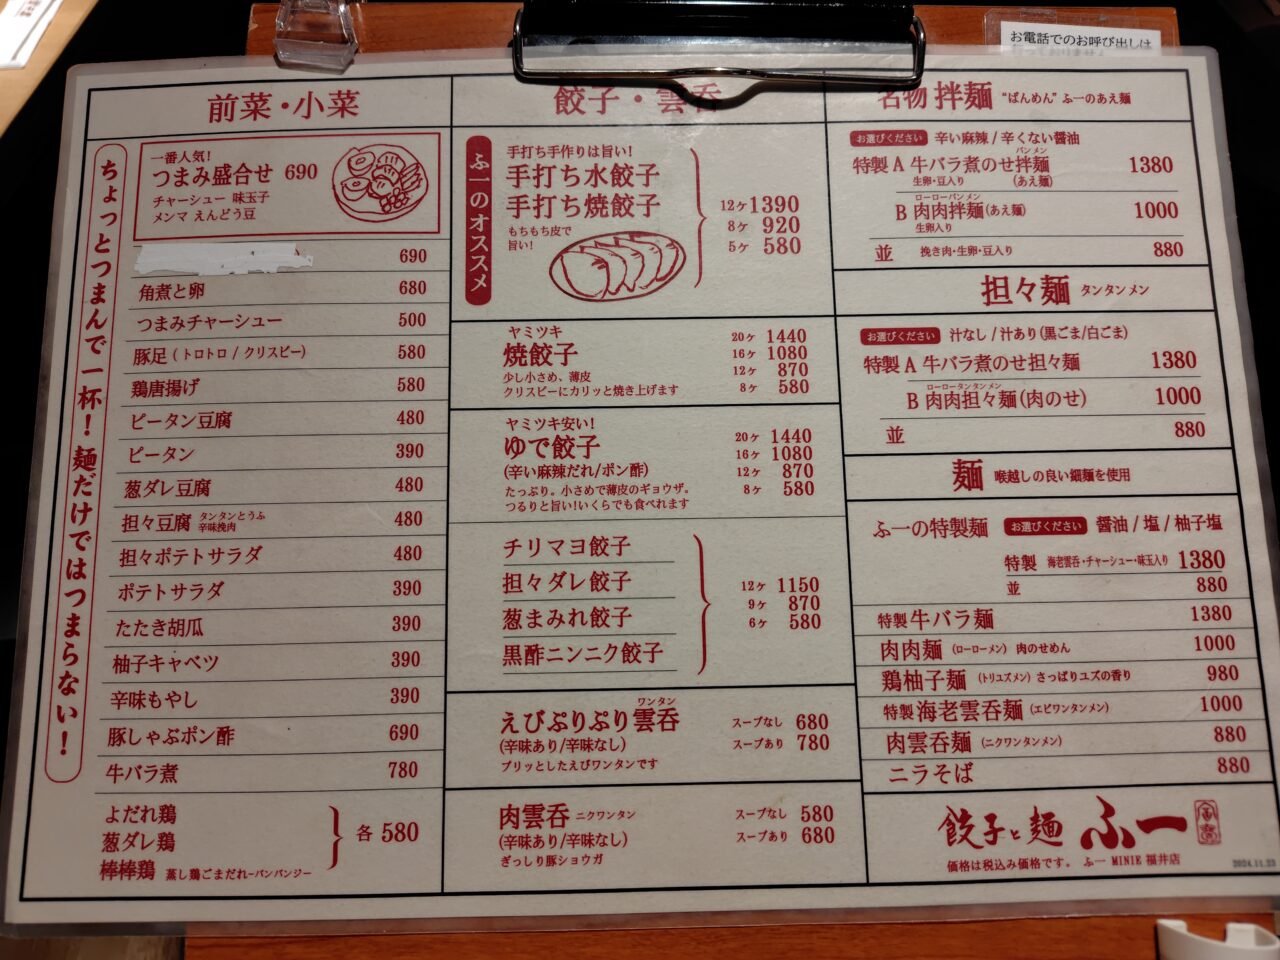 お電話でのお呼び出しは
前菜・小菜
ちょっとつまんで一杯！麺だけではつまらない！
一番人気！
つまみ盛合せ 690
チャーシュー 味玉子
メンマ えんどう豆
690
角煮と卵 680
つまみチャーシュー 500
豚足（トロトロ / クリスピー） 580
鶏唐揚げ 580
ピータン豆腐 480
ピータン 390
葱ダレ豆腐 480
担々豆腐 タンタンとうふ 辛味挽肉 480
担々ポテトサラダ 480
ポテトサラダ 390
たたき胡瓜 390
柚子キャベツ 390
辛味もやし 390
豚しゃぶポン酢 690
牛バラ煮 780
よだれ鶏
葱ダレ鶏
棒棒鶏 蒸し鶏ごまだれーバンバンジー
各 580
餃子・雲呑
ふーのオススメ
手打ち手作りは旨い！
手打ち水餃子
手打ち焼餃子
もちもち皮で
旨い！
12ヶ 1390
8ヶ 920
5ヶ 580
ヤミツキ
焼餃子
少し小さめ、薄皮
クリスピーにカリッと焼き上げます
20ヶ 1440
16ヶ 1080
12ヶ 870
8ヶ 580
ヤミツキ安い！
ゆで餃子
(辛い麻辣だれ/ポン酢)
たっぷり。小さめで薄皮のギョウザ。
つるりと旨い！いくらでも食べれます
20ヶ 1440
16ヶ 1080
12ヶ 870
8ヶ 580
チリマヨ餃子
担々ダレ餃子
葱まみれ餃子
黒酢ニンニク餃子
12ヶ 1150
9ヶ 870
6ヶ 580
ワンタン
えびぷりぷり雲呑
(辛味あり/辛味なし)
プリッとしたえびワンタンです
スープなし 680
スープあり 780
肉雲呑 ニクワンタン
(辛味あり/辛味なし)
ぎっしり豚ショウガ
スープなし 580
スープあり 680
名物 拌麺 “ばんめん” ふーのあえ麺
お選びください 辛い麻辣 / 辛くない醤油
バンメン
特製 A 牛バラ煮のせ拌麺 1380
生卵・豆入り (あえ麺)
ローローバンメン
B 肉肉拌麺(あえ麺) 1000
生卵入り
並 挽き肉・生卵・豆入り 880
担々麺 タンタンメン
お選びください 汁なし / 汁あり(黒ごま/白ごま)
特製 A 牛バラ煮のせ担々麺 1380
ローロータンタンメン
B 肉肉担々麺(肉のせ) 1000
並 880
麺 喉越しの良い細麺を使用
ふーの特製麺 お選びください 醤油 / 塩 / 柚子塩
特製 海老雲呑・チャーシュー・味玉入り 1380
並 880
特製 牛バラ麺 1380
肉肉麺 (ローローメン) 肉のせめん 1000
鶏柚子麺 (トリユズメン) さっぱりユズの香り 980
特製 海老雲呑麺 (エビワンタンメン) 1000
肉雲呑麺 (ニクワンタンメン) 880
ニラそば 880
餃子と麺 ふー
価格は税込み価格です。 ふー MINIE 福井店
2024.11.23